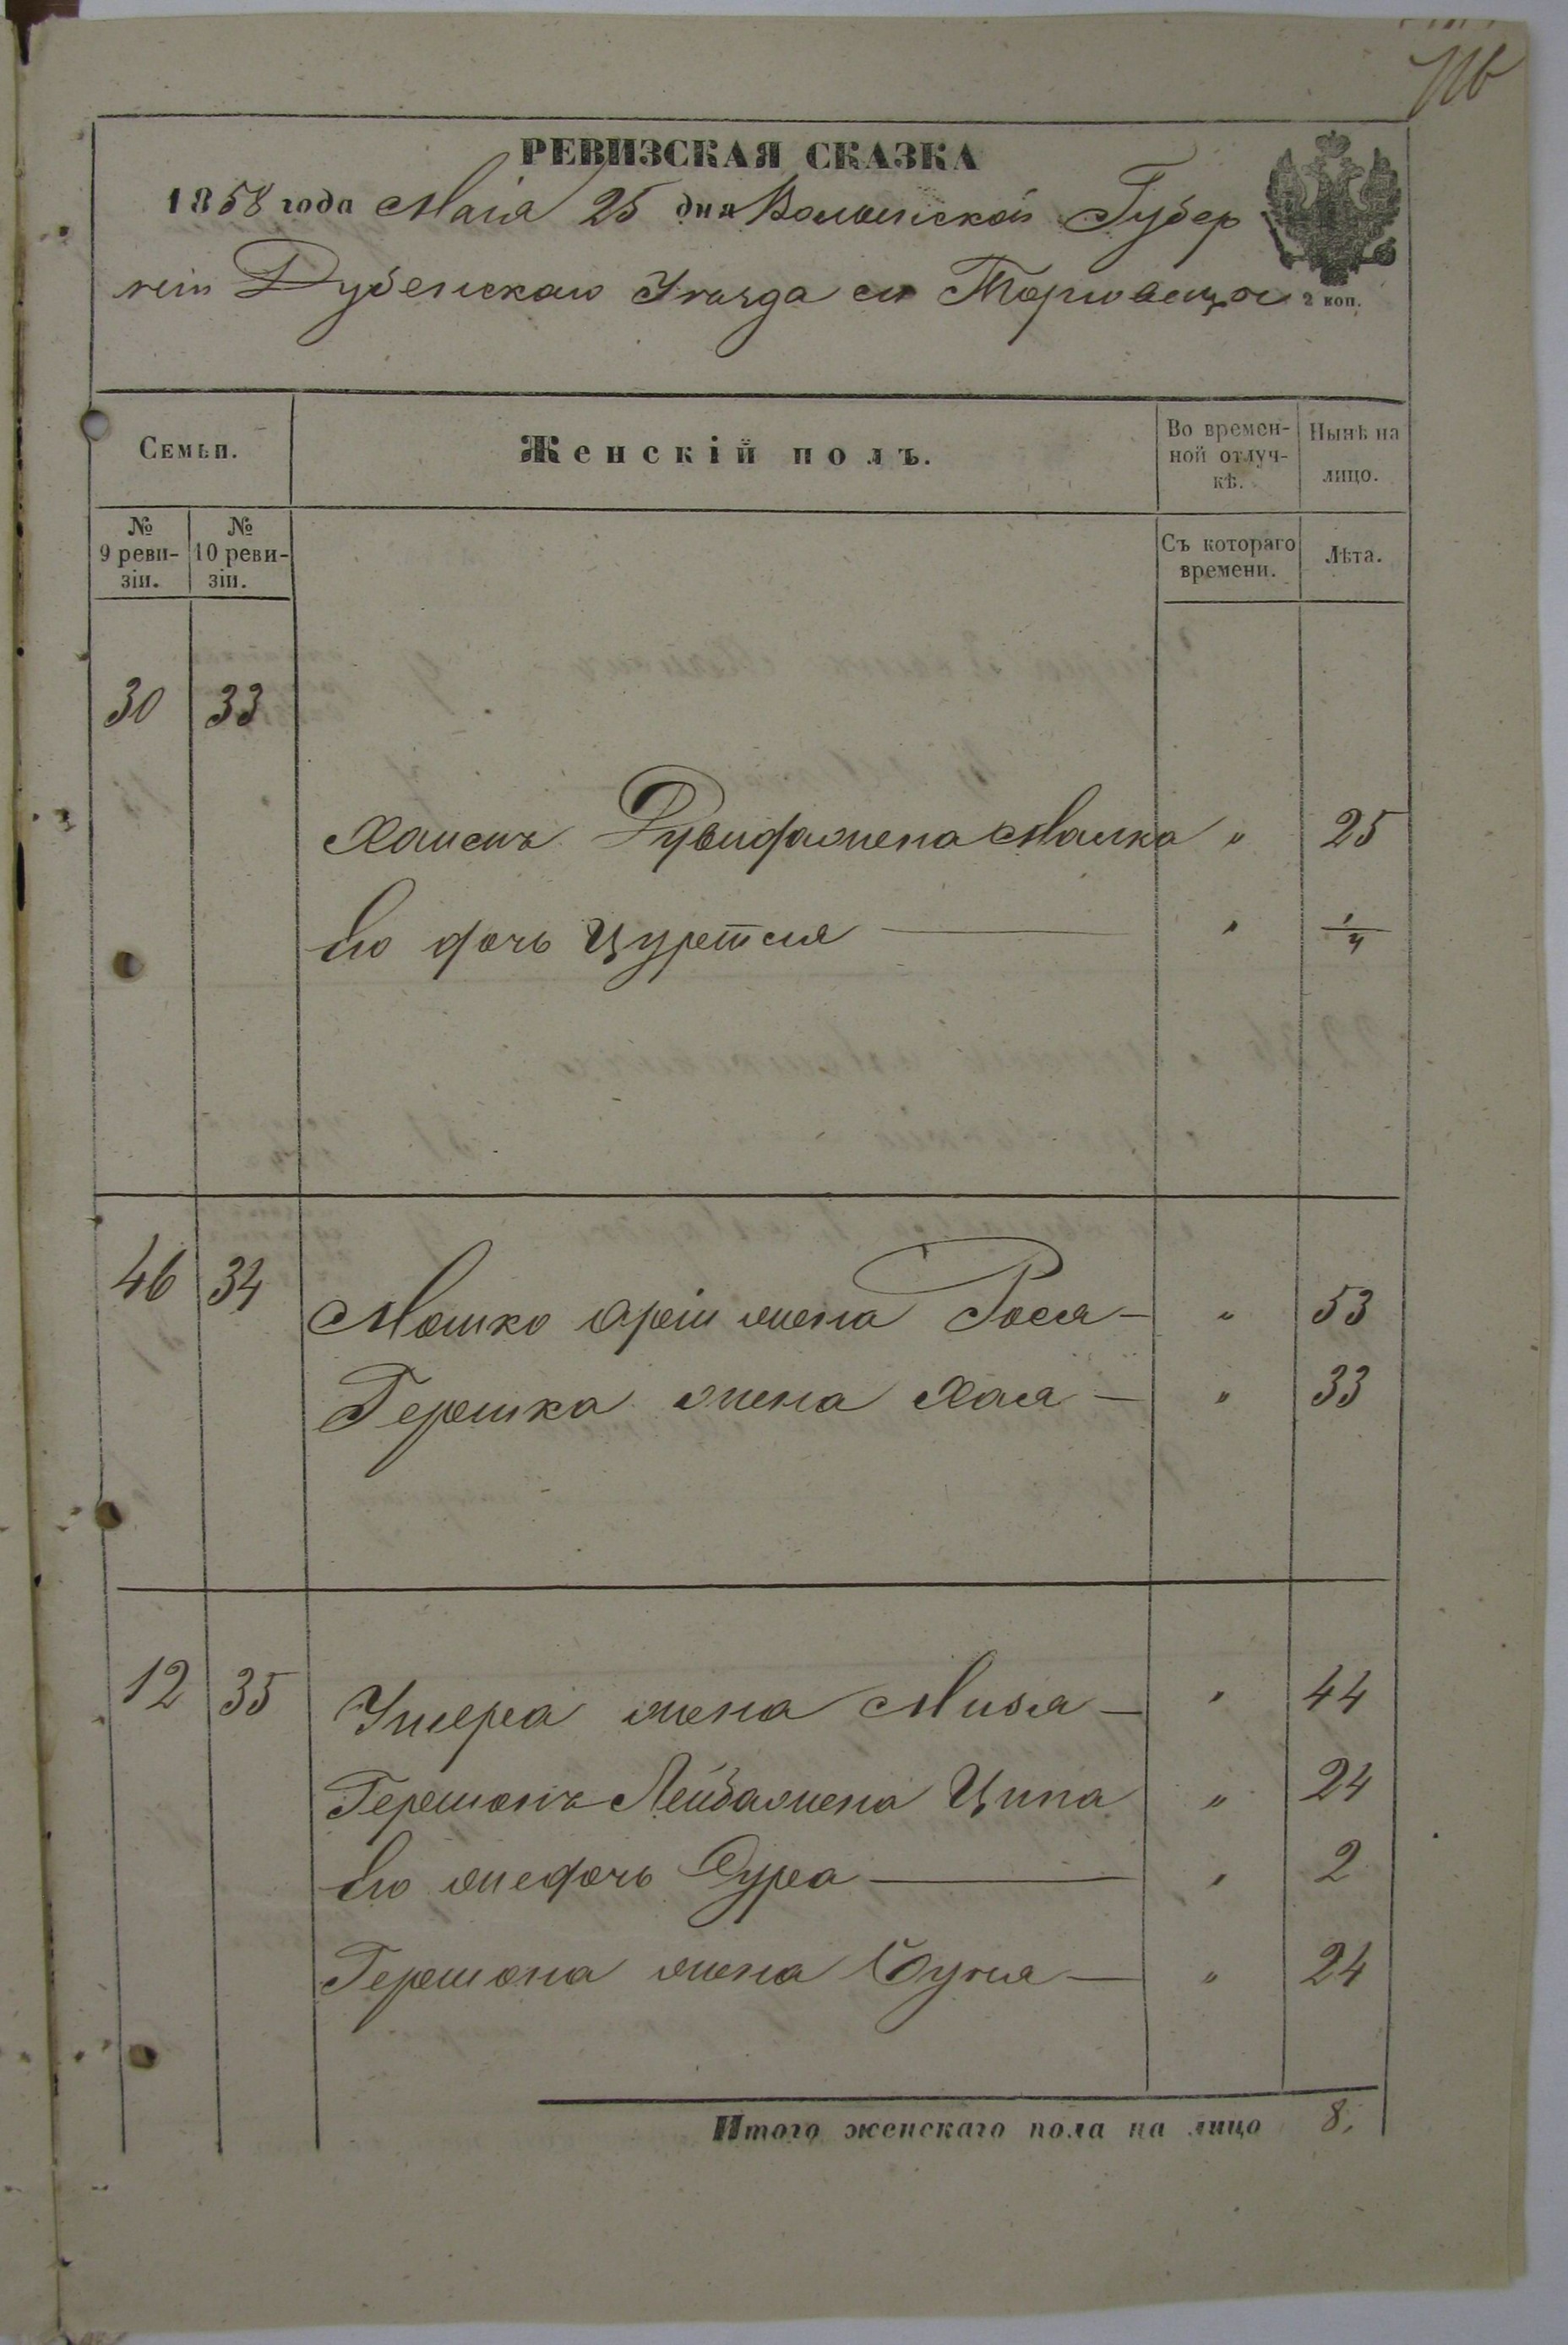 РЕВИЗСКАЯ СКАЗКА
1858 года Маія 25 дня Волынской Губер
ніи Дубенскаго Уѣзда Торговица
2 коп.
Семьи.
Женскій полъ.
Во времен-
ной отлуч-
кѣ.
Нынѣ на
лицо.
№
9 реви-
зіи.
№
10 реви-
зіи.
Съ котораго
времени.
Лѣта.
30 33
Рувина жена Малка " 25
Его дочь " 1/4
46 34 Мошко жена Рося — " 53
Гершка жена Хая — " 33
12 35 Ушера жена — " 44
Гершонъ Лейба жена Ципа " 24
Его же дочь Сура — " 2
Гершона жена — " 24
Итого женскаго пола на лицо 8.